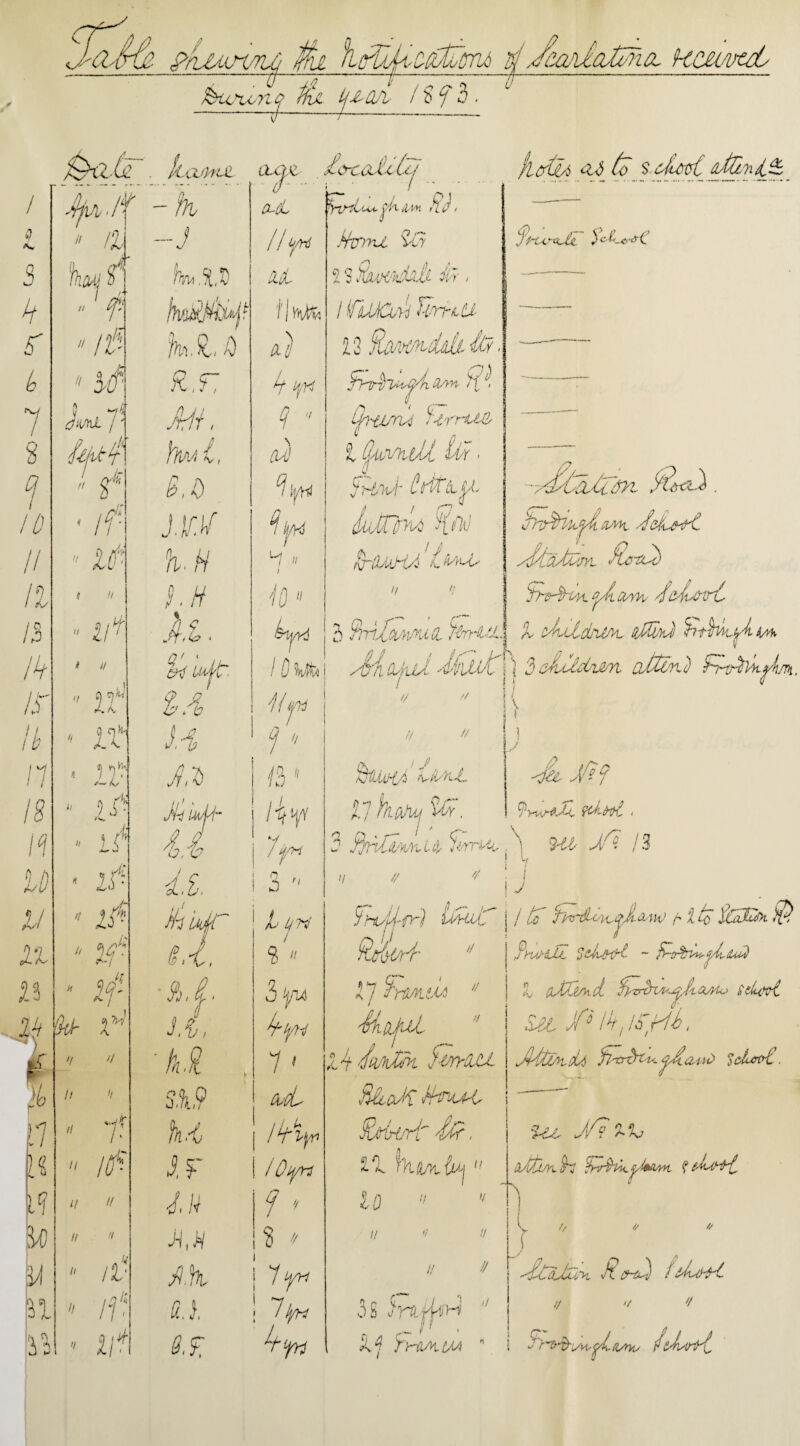 Table shewing the notifications of Scarlatina received
during the year 1893.
Date. Name age Locality Notes as to School attend.
1 Apr. 1st - M ad. Frodingham Rd.
2 " 12 - J 11 yrs Home St Private School
3 May 8th Mrs. R. D ad. 23 Ravendale Str.
4 " 9th 11 mths 1 Terrace
5 " 12th Mrs. R. D ad 23 Ravendale Str.
6 " 30th R. F. 4 yrs Frodingham Rd.
7 June 7th A. H. 9 " Greens Terrace
8 Sept 4th Mrs L. ad 2 Gurnell Str.
9 " 8th B. D 9 yrs Cottage Station Road.
10 " 19th J. W. W 9 yrs Suttons Row Frodingham School
11 " 20th N. H 7 " Dawes' Lane Station Road
12 " " J. H 10 " " " Frodingham School
13 " 21st A. E. 6 yrs 3 Britannia Terrace. 2 children attend Frodingham
14 " " E's inft. 10 mths Chapel Street 3 children attend Frodinghm.
15 " 22nd E. A 11 yrs " "
16 " 22nd J. A 9 " " "
17 " 22nd A. D 13 " Dawes' Lane See No 9
18 " 25th H's inft 1½ yr 27 Mary Str. Private school.
19 " 25th E. E 7 yrs 3 Britannia Terrace. see No 13
20 " 25th L. E. 3 " " " "
21 " 25th H's inft 2 yrs Trafford Street 1 to Frodingham & 2 to Station Rd
22 " 29th E. L. 8 " Robert " Private School - Frodingham
23 " 29th B. G. 3 yrs 27 Francis " 2 attend Frodingham school
24 Oct 2nd J. E. 4 yrs Chapel " See No 14, 15, & 16.
25 " " M. R 7 " 24 Terrace Attends Frodingham School.
26 " " S. M. P ad. House
27 " 7th M. L 14½ yrs Robert Str. See No 22
28 " 10th J. F 10 yrs 22 Manley " attends Frodingham school
29 " " L. H 9 " 20 " " " " "
30 " " H, H 8 " " " "
31 " 12th A. M. 7 yrs " " Station Road School
32 " 19th A. J. 7 yrs 38 Trafford " " " "
33 " 21st B. F. 4 yrs 29 Francis " Frodingham School